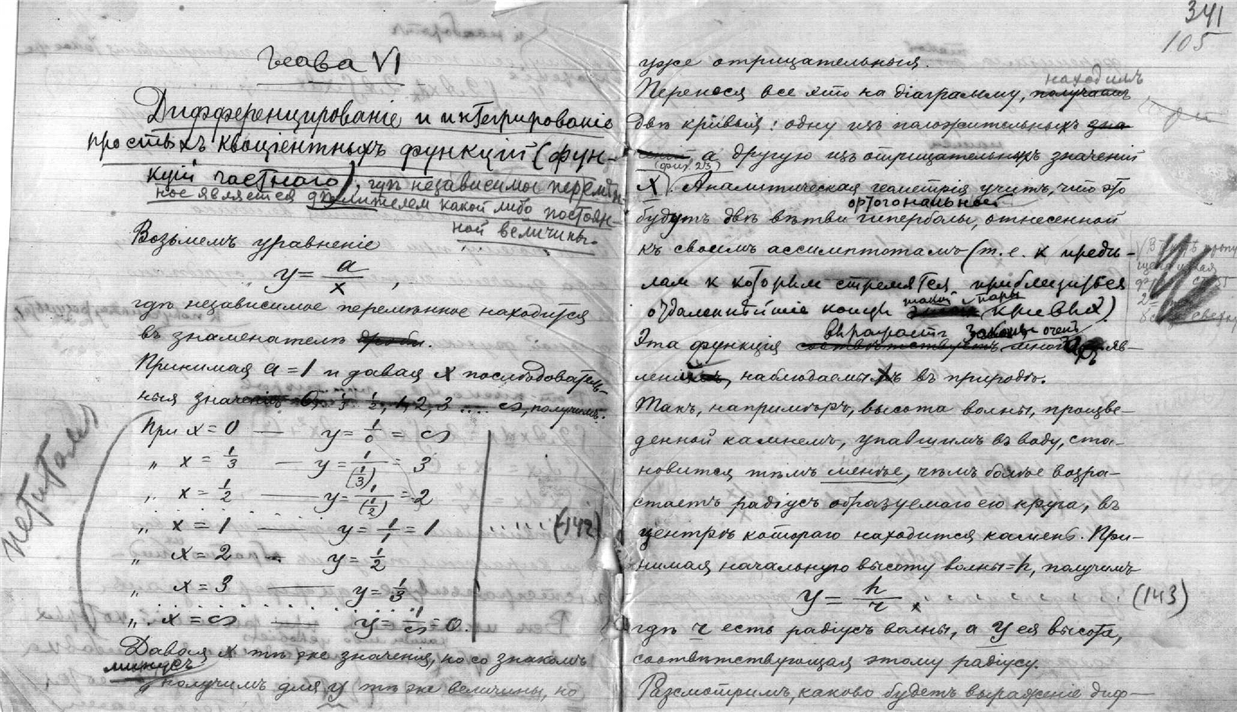 Глава VI
Дифференцированіе и интегрированіе
простыхъ квоціентныхъ функцій (фун-
кцій частнаго), гдѣ независимое перемѣн-
ное является дѣлителемъ какой либо постоян-
ной величины.
Возьмемъ уравненіе
y = a/x ,
гдѣ независимое перемѣнное находится
въ знаменателѣ дроби.
Принимая a = 1 и давая x послѣдователь-
ныя значенія 0, 1/3, 1/2, 1, 2, 3 ... ∞, получимъ:
При x = 0 — y = 1/0 = ∞
„ x = 1/3 — y = 1/(1/3) = 3
„ x = 1/2 — y = 1/(1/2) = 2
„ x = 1 — y = 1/1 = 1
„ x = 2 — y = 1/2
„ x = 3 — y = 1/3
„ x = ∞ — y = 1/∞ = 0.
(142)
петитомъ
Давая x тѣ же значенія, но со знакомъ
минусъ
получимъ для y тѣ же величины, но
341
105
уже отрицательныя.
находимъ
Перенося все это на діаграмму, получаемъ
двѣ кривыя: одну изъ положительныхъ зна
а другую изъ отрицательныхъ значеній
(фиг. 23)
X). Аналитическая геометрія учитъ, что это
ортогональной
будутъ двѣ вѣтви гиперболы, отнесенной
къ своимъ ассимптотамъ (т.е. к предѣ-
лам к которым стремятся приблизиться
отдаленнѣйшіе концы такой пары кривых)
выражаетъ законы очень
Эта функція соотвѣтствуетъ многихъ яв-
леній, наблюдаемыхъ въ природѣ.
Такъ, напримѣръ, высота волны, произве-
денной камнемъ, упавшимъ въ воду, ста-
новится тѣмъ менѣе, чѣмъ болѣе возра-
стаетъ радіусъ образуемаго ею круга, въ
центрѣ котораго находится камень. При-
нимая начальную высоту волны = h, получимъ
y = h/r (143)
гдѣ r есть радіусъ волны, а y ея высота,
соотвѣтствующая этому радіусу.
Разсмотримъ, каково будетъ выраженіе диф-